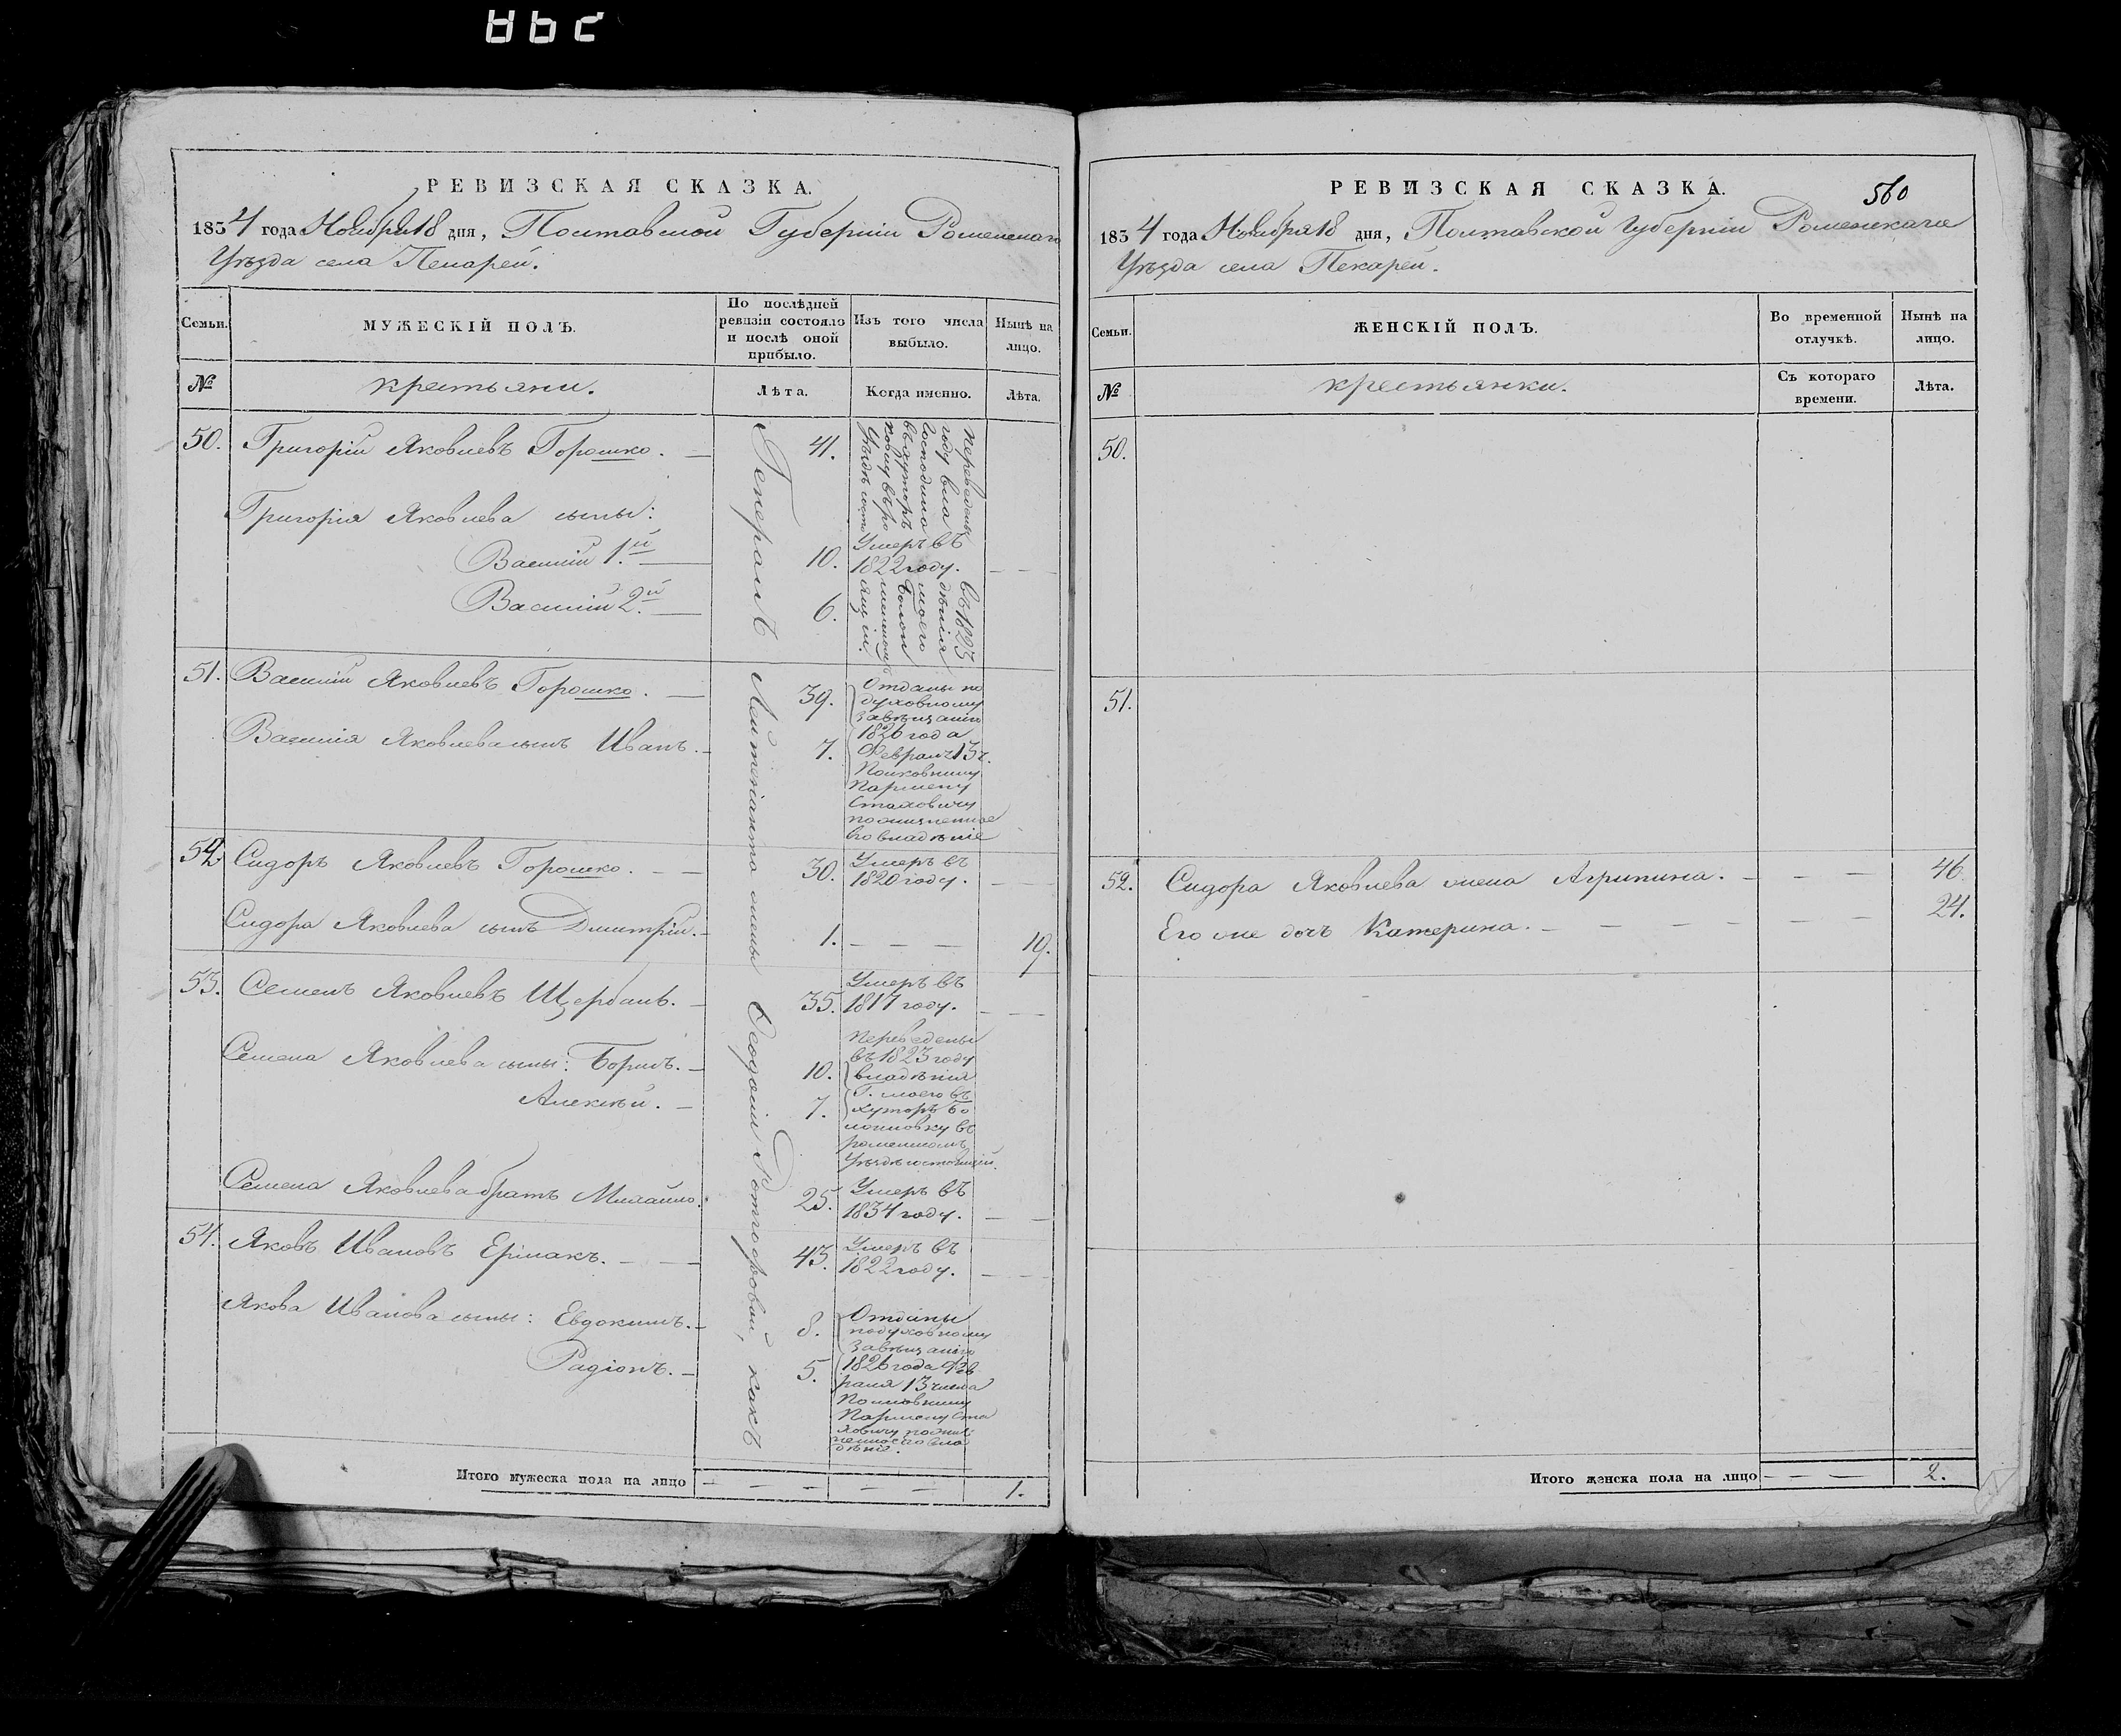 РЕВИЗСКАЯ СКАЗКА.
1834 года Ноября 18 дня, Полтавской Губерніи Роменскаго
Уѣзда села Пекарей.
Семьи.
МУЖЕСКІЙ ПОЛЪ.
По послѣдней ревизіи состояло и послѣ оной прибыло.
Изъ того числа выбыло.
Нынѣ на лицо.
№
крестьяни.
Лѣта.
Когда именно.
Лѣта.
50. Григорій Яковлевъ Горошко. 41.
Переведены въ 1823
году вла дѣнія
Господина моего
въ хуторъ Болои
новку въ ро менскомъ
Уѣздѣ состо ящій.
Григорія Яковлева сыны:
Василій 1й 10. Умеръ въ
1822 году.
Василій 2й 6.
51. Василій Яковлевъ Горошко. 39.
Василія Яковлева сынъ Иванъ. 7.
Отданы по
духовному
завѣщанію
1826 года
Февраля 13 ч.
Полковнику
Пармену
Стаховичу
пожизненное
во владѣніе
52. Сидоръ Яковлевъ Горошко. 30. Умеръ въ
1820 году.
Сидора Яковлева сынъ Дмитрій. 1. 19.
53. Семенъ Яковлевъ Щербакъ. 35. Умеръ въ
1817 году.
Семена Яковлева сыны: Борисъ. 10.
Алексѣй. 7.
Переведены
въ 1823 году
владѣнія
Г. моего въ
хуторъ Бо
лоиновку въ
роменскомъ
Уѣздѣ состоящій.
Семена Яковлева братъ Михайло. 25. Умеръ въ
1834 году.
54. Яковъ Ивановъ Ермакъ. 43. Умеръ въ
1822 году.
Якова Иванова сыны: Евдокимъ. 8.
Радіонъ. 5.
Отданы
по духовному
завѣщанію
1826 года Фев
раля 13 числа
Полковнику
Пармену Ста
ховичу пожиз
ненное во вла
дѣніе.
Генералъ Лейтенанта жены Феодосіи Готгофовны, какъ
Итого мужеска пола на лицо 1.
РЕВИЗСКАЯ СКАЗКА.
560
1834 года Ноября 18 дня, Полтавской Губерніи Роменскаго
Уѣзда села Пекарей.
Семьи.
ЖЕНСКІЙ ПОЛЪ.
Во временной отлучкѣ.
Нынѣ на лицо.
№
крестьянки.
Съ котораго времени.
Лѣта.
50.
51.
52. Сидора Яковлева жена Агрипина. 46.
Его же дочь Катерина. 24.
Итого женска пола на лицо 2.